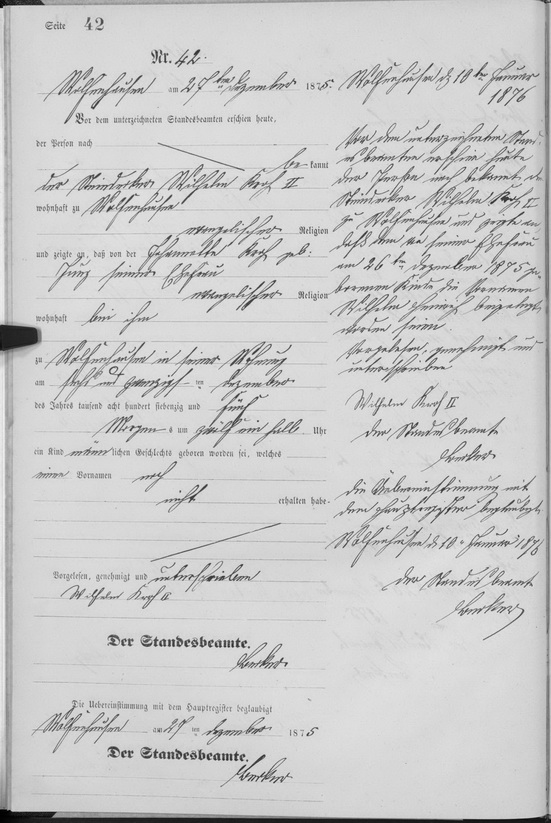 Seite 42
Nr. 42.
Wolfenhausen am 27ten Dezember 1875.
Vor dem unterzeichneten Standesbeamten erschien heute,
der Person nach
bekannt
der Steindecker Wilhelm Krof II
wohnhaft zu Wolfenhausen
evangelischer Religion
und zeigte an, daß von der Krof geb:
Jung seiner Ehefrau
evangelischer Religion
wohnhaft bei ihm
zu Wolfenhausen in seiner Wohnung
am sechs und zwanzigsten Dezember
des Jahres tausend acht hundert siebenzig und fünf
Morgens um zwölf ein halb Uhr
ein Kind männlichen Geschlechts geboren worden sei, welches
einen Vornamen noch
nicht erhalten habe
Vorgelesen, genehmigt und unterschrieben
Wilhelm Krof II
Der Standesbeamte.
Becker
Die Uebereinstimmung mit dem Hauptregister beglaubigt
Wolfenhausen am 27ten Dezember 1875
Der Standesbeamte.
Becker
Wolfenhausen d 10ten Januar
1876
Vor dem unterzeichneten Stand
es beamten erschien heute
der Person nach bekannt der
Steindecker Wilhelm Krof II
zu Wolfenhausen und zeigte an
daß dem von seiner Ehefrau
am 26ten Dezember 1875 ge-
borenen Kinde die Vornamen
Wilhelm Heinrich beigelegt
worden seien
Vorgelesen, genehmigt und
unterschrieben
Wilhelm Krof II
Der Standesbeamte
Becker
die Uebereinstimmung mit
dem Hauptregister beglaubigt
Wolfenhausen d 10 Januar 1876
Der Standesbeamte
Becker